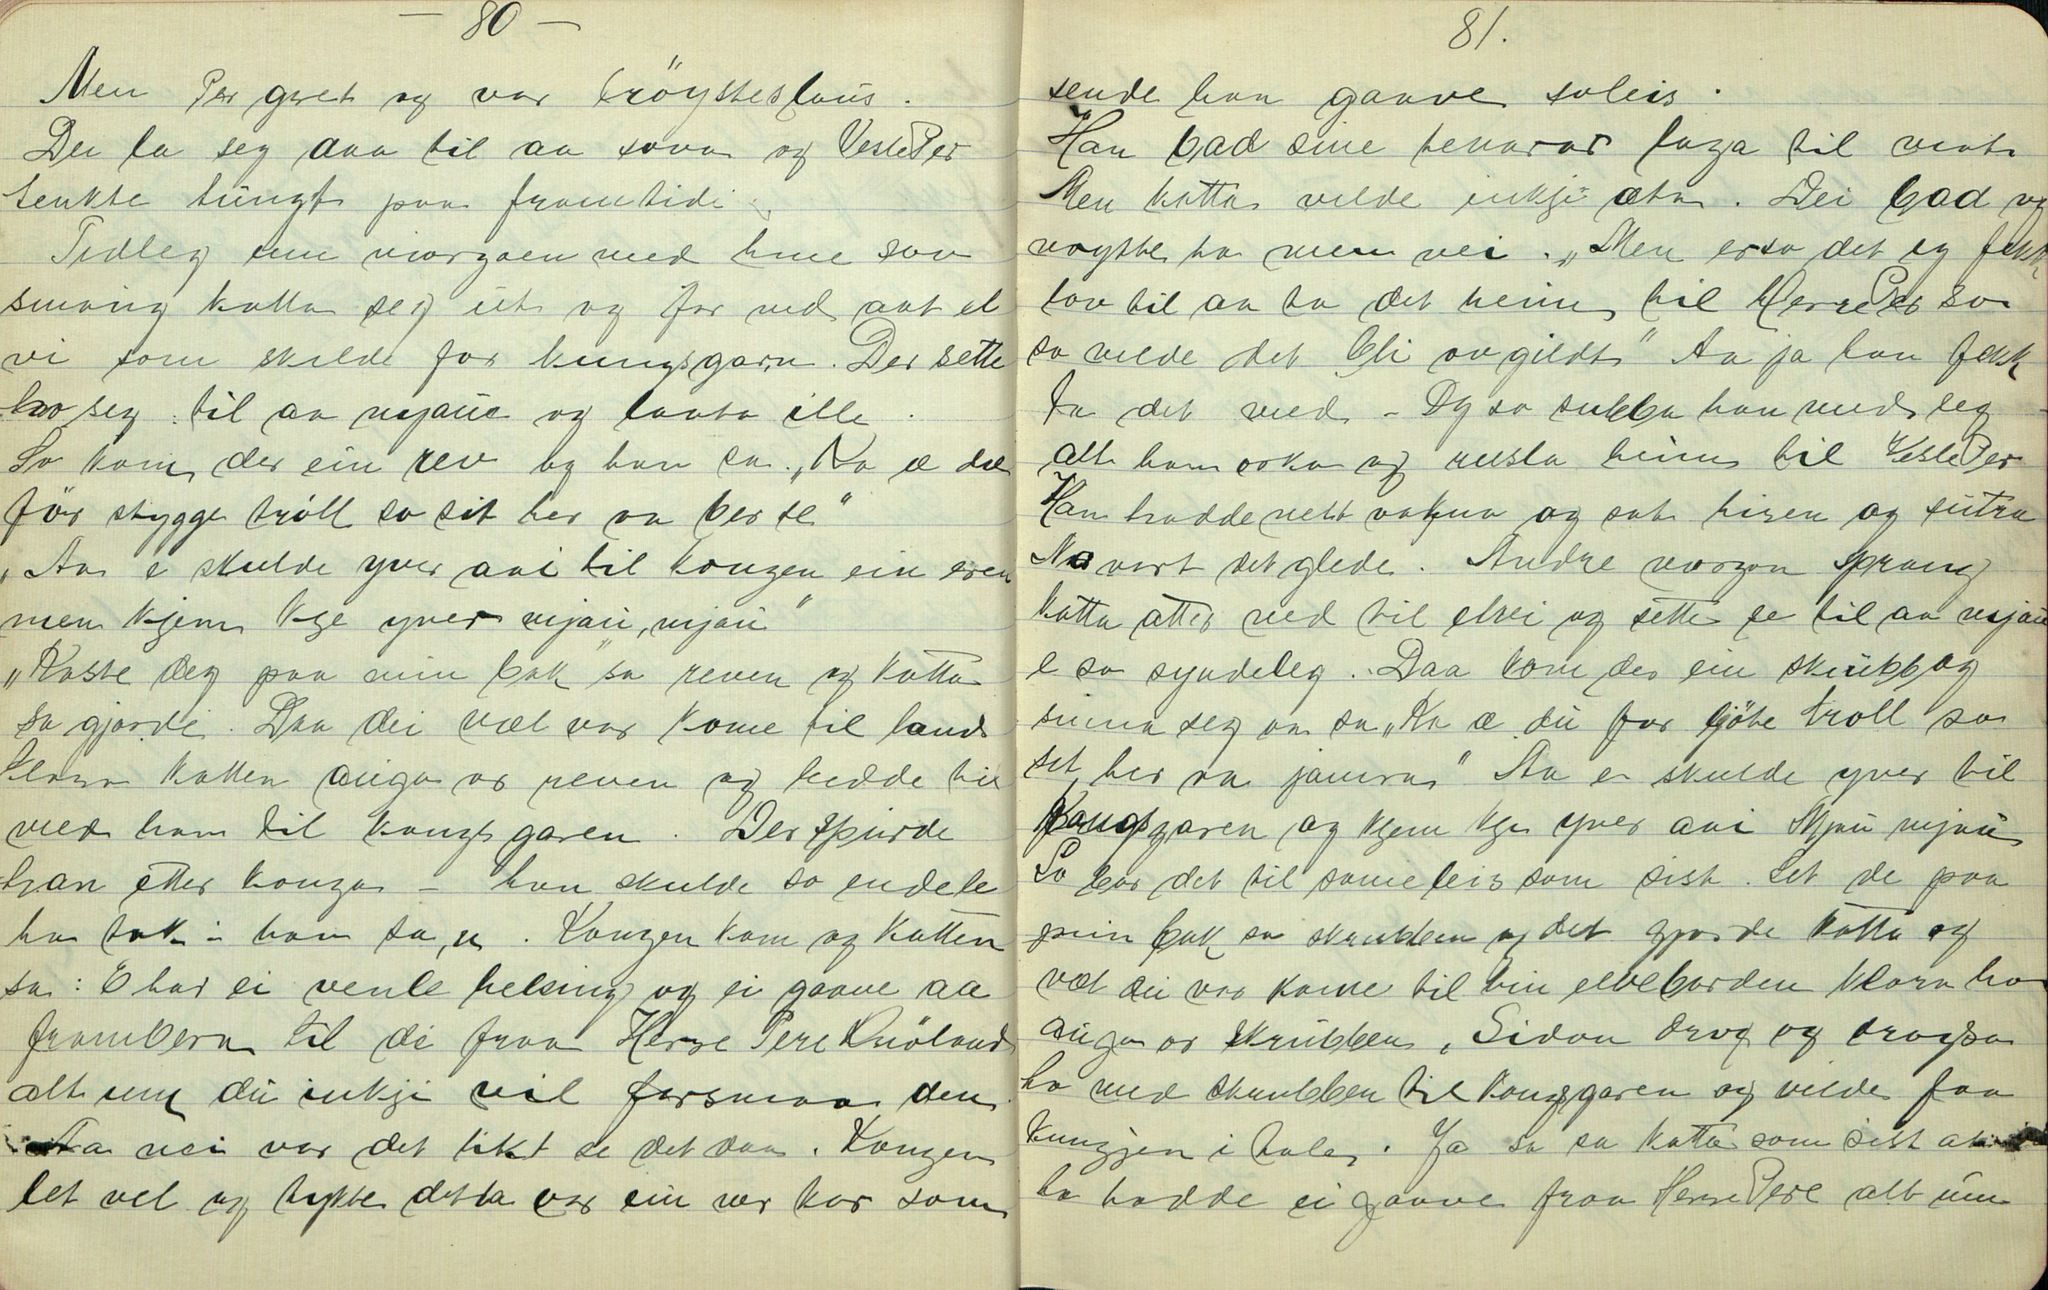 — 80 —
Men Per gret og var tröysteslaus.
Dei la seg daa til aa sova og VeslePer
tenkte tungt paa framtidi
Tidleg um morgoen med hine sov
smaug katta seg ut og for ned aat el
vi som skilde for kungsgar,n. Der sette
ho seg til aa mjaua og laata ille.
So kom der ein rev og han sa. „Ka æ da
för stygge tröll so sit her aa ber se"
„Aa e skulde yver aai til kongen ein eren
men kjem kje yver mjau, mjau"
„Kaste deg paa min bak" sa reven og katta
so gjorde. Daa dei væl var kome til lands
klora katten augo or reven og leidde hin
med ham til kongsgaren. Der spurde
han etter kongen — han skulde so endele
ha tak i ham sa,n. Kongen kom og katten
sa: E har ei venle helsing og ei gaave aa
frambera til de fraa Herre Pere Kuöland
alt um du inkje vil forsmaa den.
Aa nei var det likt se det daa. Kongen
let vel og tykte detta var ein ver kar som
81.
sende han gaave soleis.
Han bad sine tenarar laga til mat
Men katta vilde inkje æta. Dei bad og
nøytte ho men nei. „Men ersa det eg fekk
lov til aa ta det heim til HerrePer so
so vilde det bli avgildt" Aa ja han fekk
ta det med - Og so subba han med seg
alt han orka og rusla heim til VeslePer
Han hadde nett vakna og sat higen og sutra
No vart det glede. Andre morgon sprang
katta atter ned til elvi og sette se til aa mjau
e so syndeleg. Daa kom der ein skrubb og
snuva seg aa sa „Ka æ du for ljöte troll so
sit her aa jamra" Aa e skulde yver til
Kongsgaren og kjem kje yver aai Mjau mjau
So bar det til sameleis som sist. Set de paa
min bak sa skrubben og det gjorde katta og
væl dei var kome til hin elvebarden klora ho
augo or skrubben. Sidan drog og drogso
ho med skrubben til kongsgaren og vilde faa
kungjen i tale. Ja so sa katta som sist at
ho hadde ei gaave fraa Herre Pere alt um